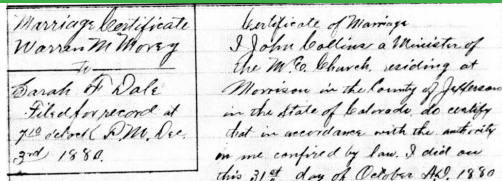 Marriage Certificate
Warren M Morey
To
Sarah F Dale
Filed for record at
7 10 oclock P.M. Dec.
3rd 1880.
Certificate of Marriage
I John Collins a Minister of
the M. E. Church, residing at
Morrison in the County of Jefferson
in the State of Colorado, do certify
that in accordance with the authority
on me confired by law. I did on
this 31st day of October A.D. 1880